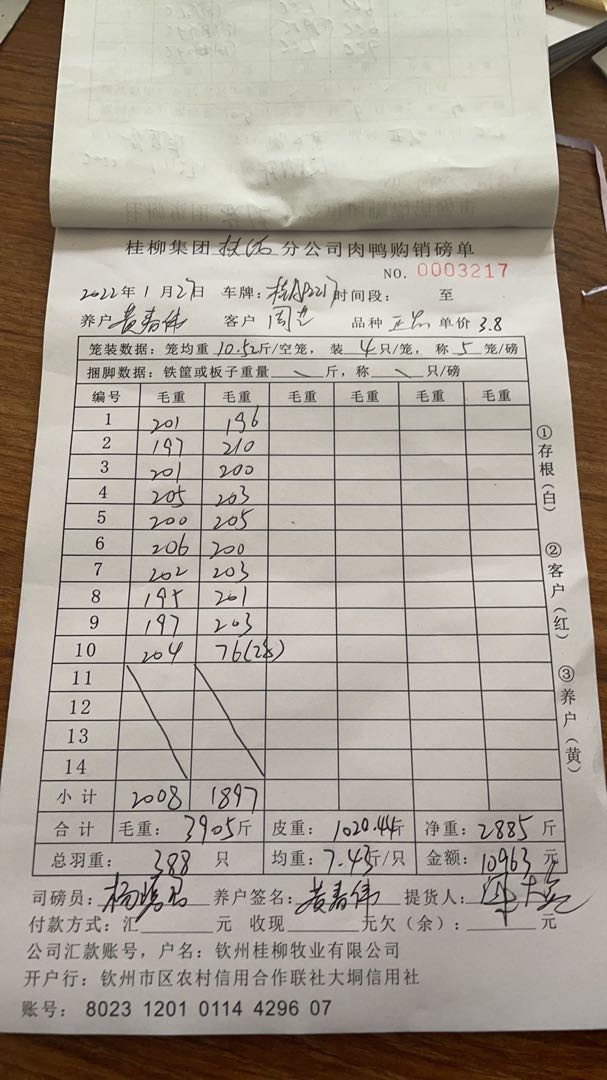 桂柳集团 分公司肉鸭购销磅单
NO. 0003217
2022年1月27日 车牌: 时间段: 至
养户 黄春伟 客户 周 品种 正品 单价 3.8
笼装数据: 笼均重 10.52斤/空笼, 装 4只/笼, 称 5 笼/磅
捆脚数据: 铁筐或板子重量 \ 斤, 称 \ 只/磅
编号 毛重 毛重 毛重 毛重 毛重 毛重
1 201 196
2 197 210
3 201 200
4 205 203
5 200 205
6 206 200
7 202 203
8 195 201
9 197 203
10 204 76(2笼)
11
12
13
14
小计 2008 1897
合计 毛重: 3905斤 皮重: 1020.44斤 净重: 2885 斤
总羽重: 388 只 均重: 7.43斤/只 金额: 10963 元
司磅员: 养户签名: 黄春伟 提货人:
付款方式: 汇 元 收现 元欠(余): 元
公司汇款账号, 户名: 钦州桂柳牧业有限公司
开户行: 钦州市区农村信用合作联社大垌信用社
账号: 8023 1201 0114 4296 07
①存根(白)
②客户(红)
③养户(黄)